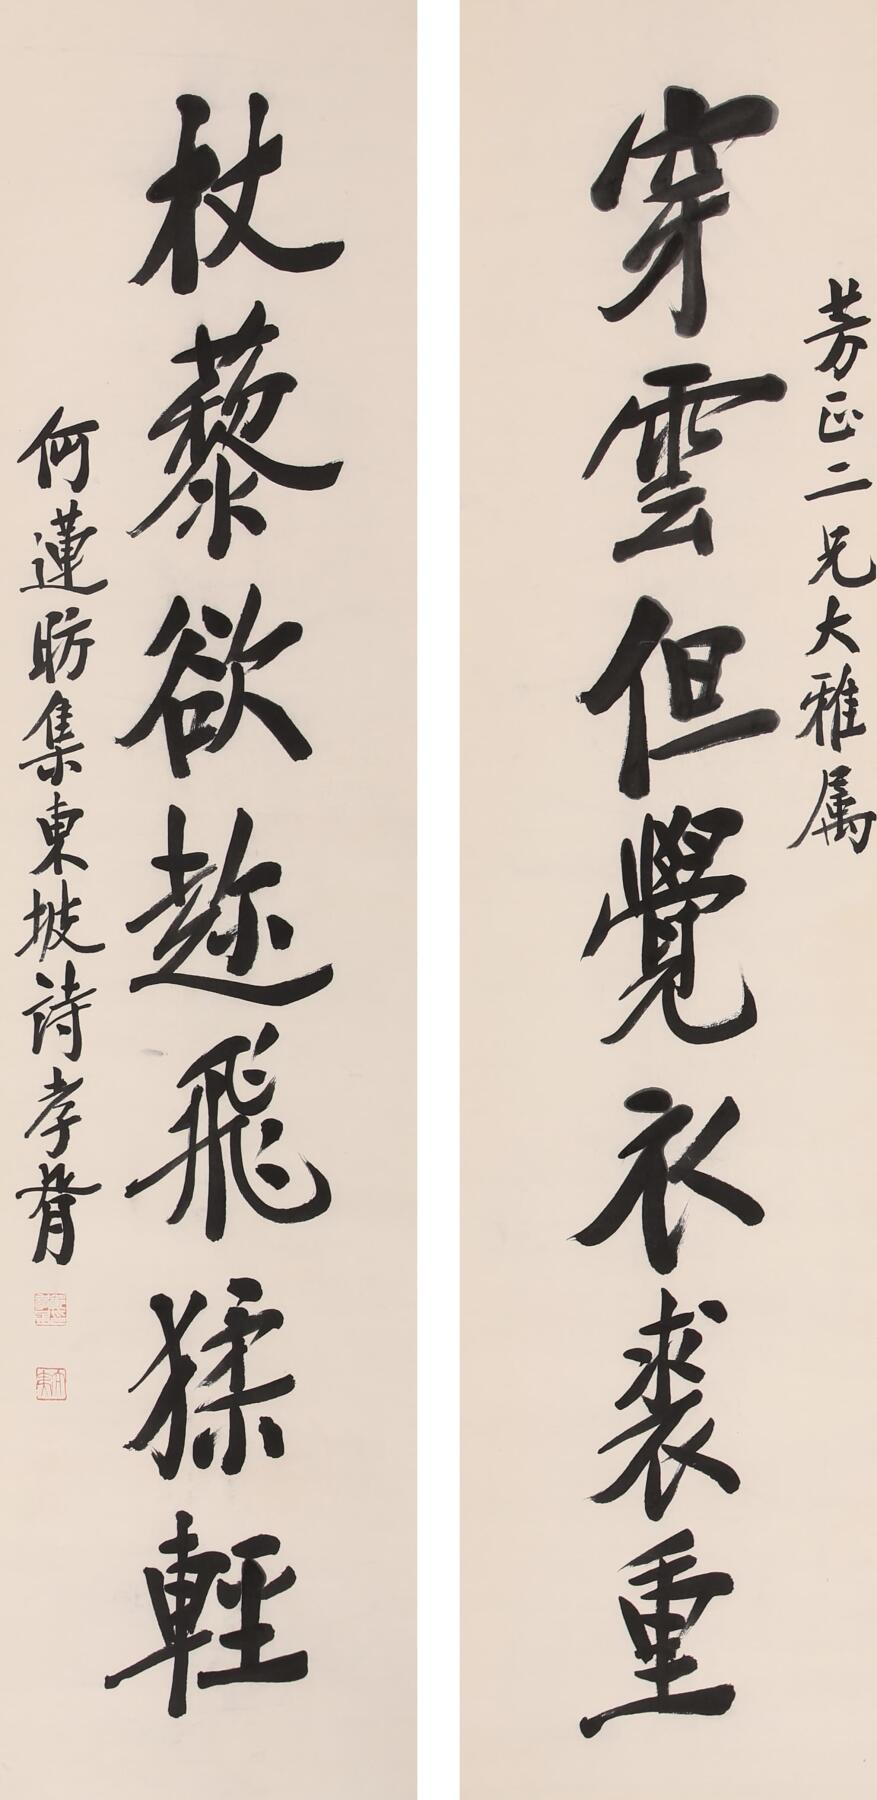 芳正二兄大雅属
穿雲但覺衣裘重
杖藜欲趂飛猱輕
何蓮昉集東坡詩孝胥